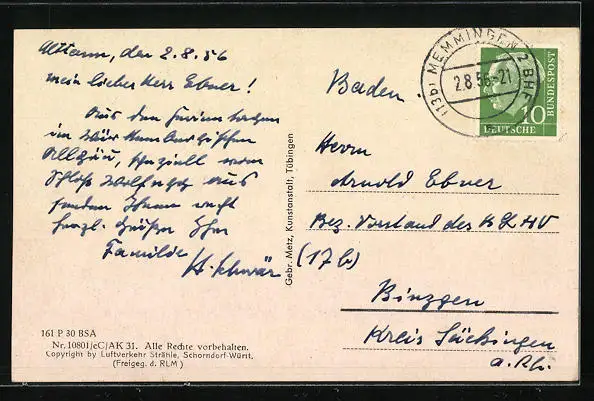 Altann, den 2.8.56
mein lieber Herr Ebner!
Aus den Ferientagen
im Württembergischen
Allgäu, speziell vom
Schloß Wolfegg aus
senden Ihnen recht
herzl. Grüße Ihre
Familie
H. Schwär
161 P 30 BSA
Nr. 10801/eC/AK 31. Alle Rechte vorbehalten.
Copyright by Luftverkehr Strähle, Schorndorf-Württ.
(Freigeg. d. RLM)
Gebr. Metz, Kunstanstalt, Tübingen
(13b) MEMMINGEN 2 BHF
2.8.56-21
10
DEUTSCHE BUNDESPOST
Baden.
Herrn
Arnold Ebner
Bez. Vorstand des
(17b)
Binzgen
Kreis Säckingen
a. Rh.